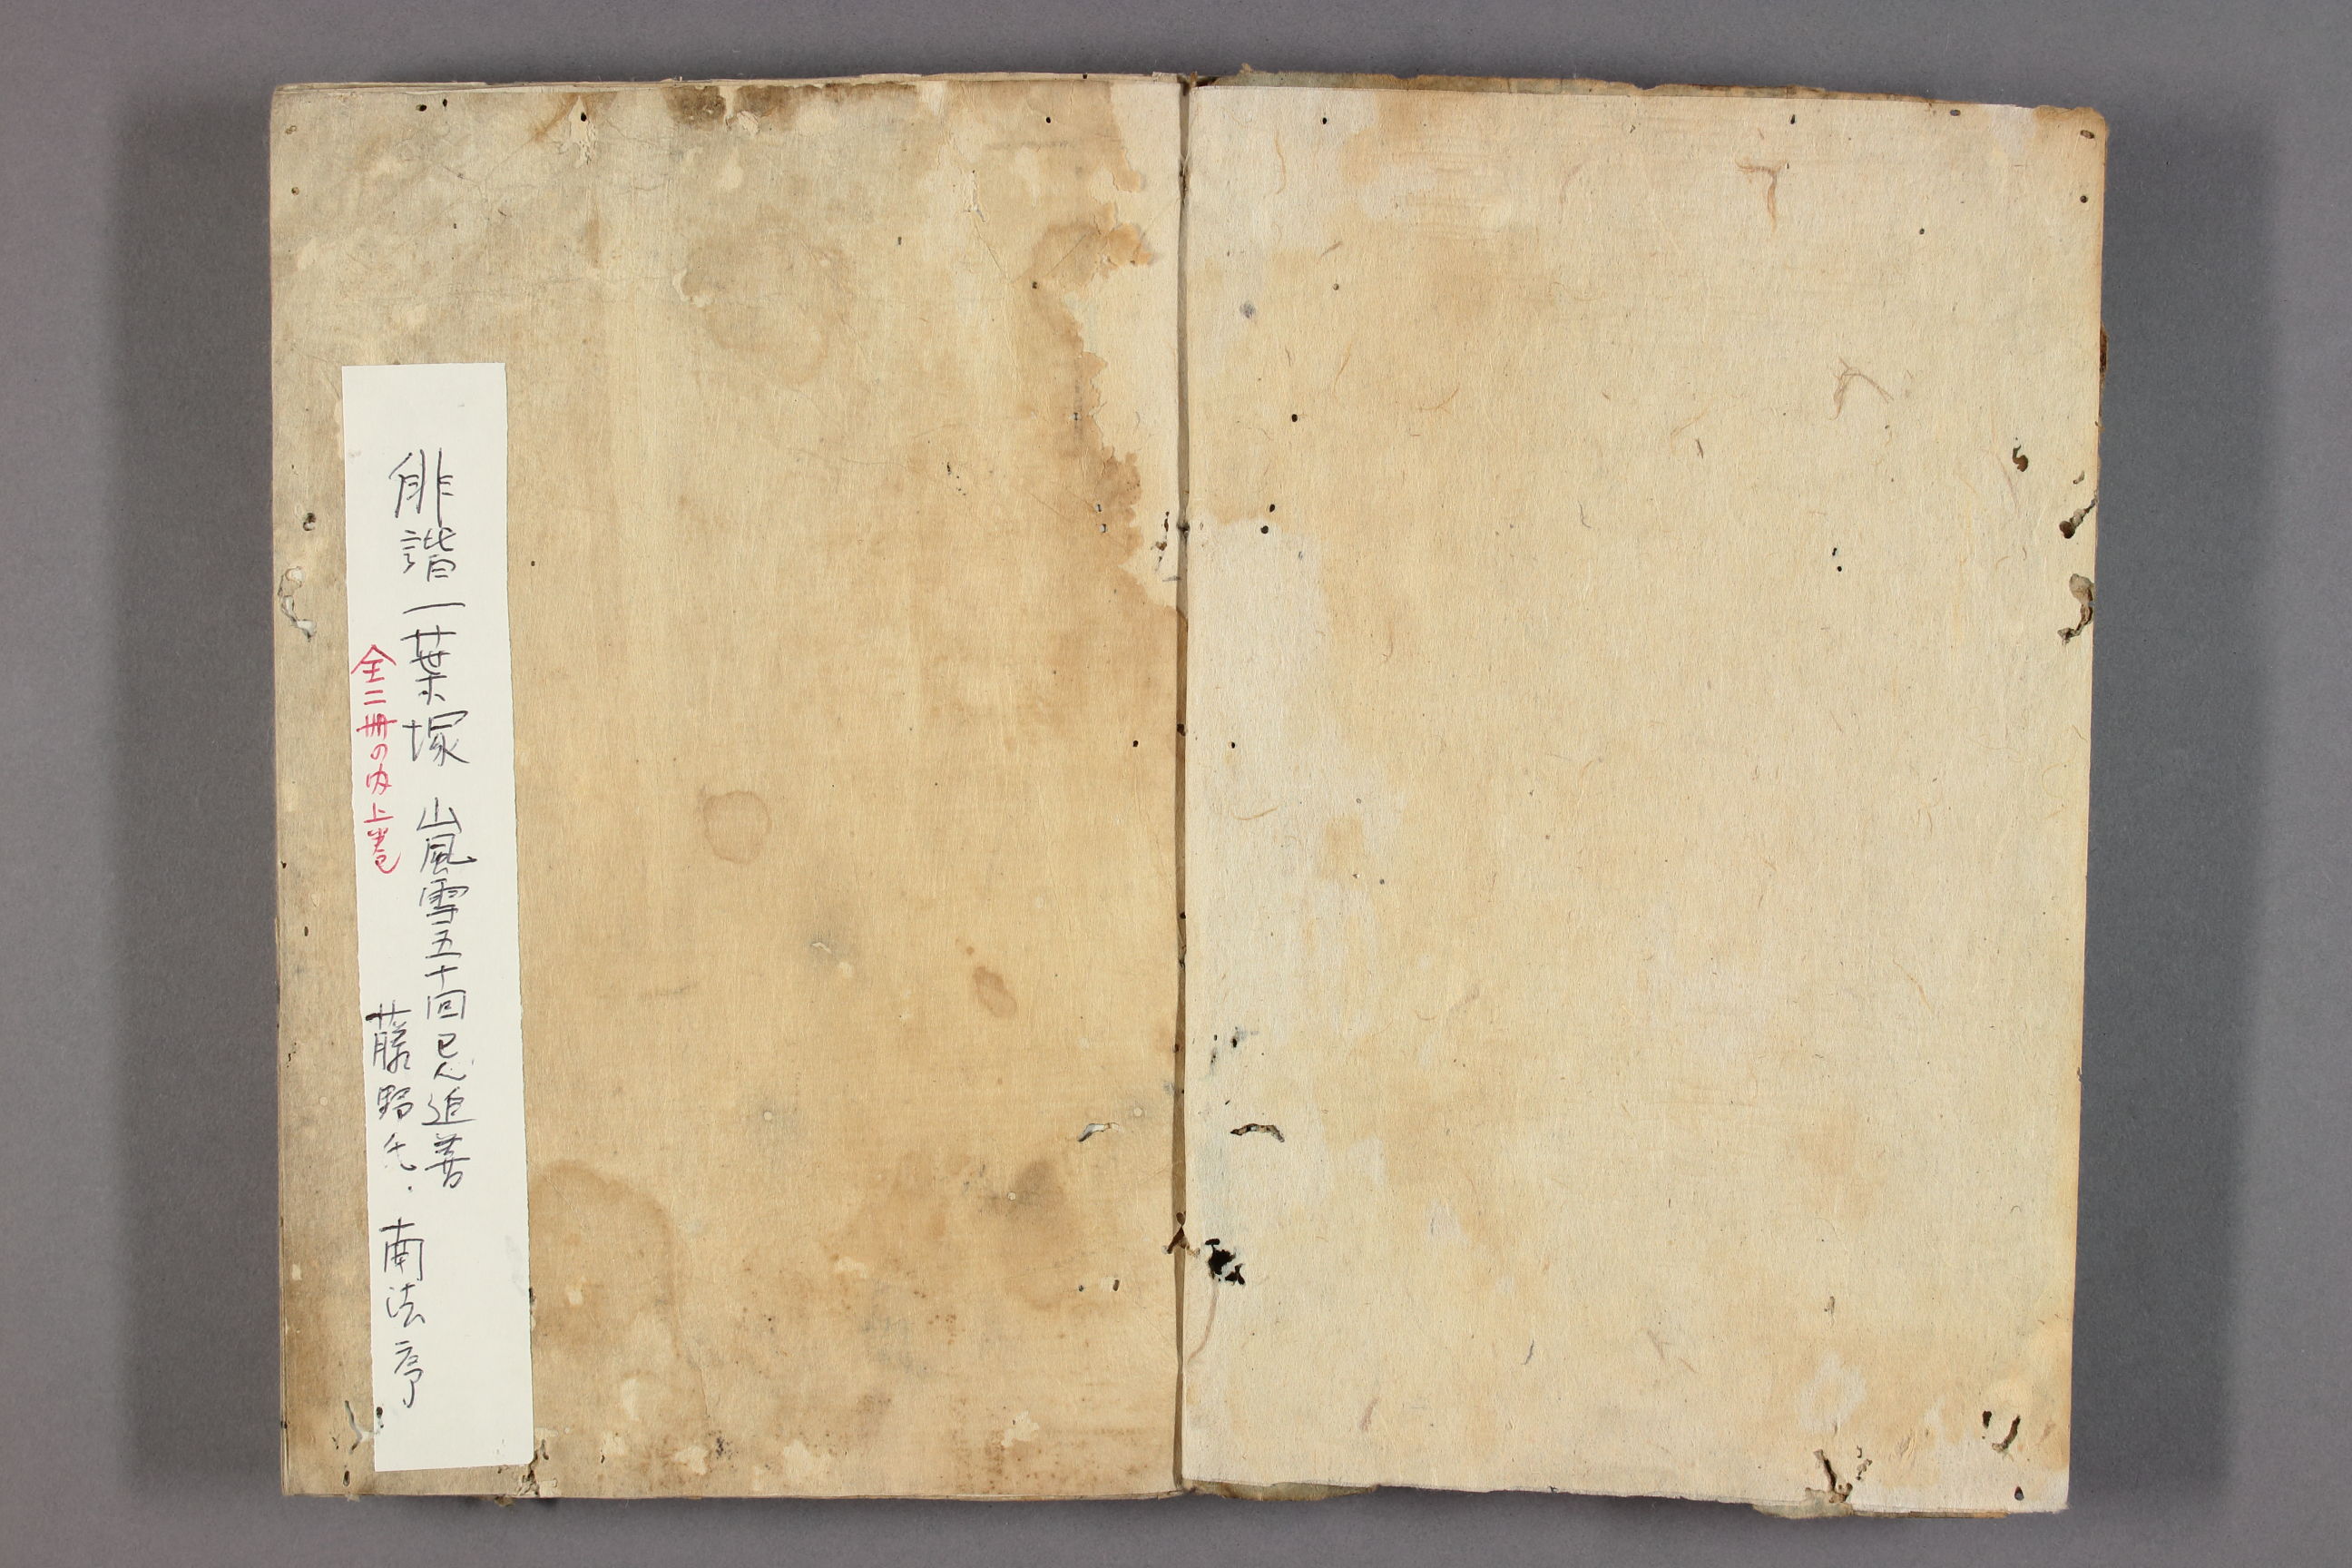 俳諧一葉塚 嵐雪五十回忌追善
全二冊の内上巻
藤野氏・南法序